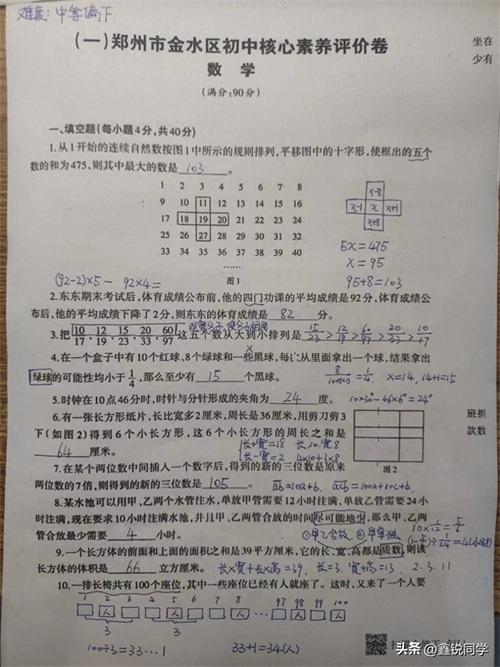 难度：中等偏下
(一)郑州市金水区初中核心素养评价卷
坐在
少有
数 学
(满分:90分)
一、填空题(每小题4分,共40分)
1.从1开始的连续自然数按图1中所示的规则排列,平移图中的十字形,使框出的五个
数的和为475,则其中最大的数是 103 。
1 2 3 4 5 6 7 8
9 10 11 12 13 14 15 16
17 18 19 20 21 22 23 24
25 26 27 28 29 30 31 32
33 34 35 36 37 38 39 40
……
图1
x-8
x-1 x x+1
x+8
5x=475
x=95
95+8=103
(92-2)×5- 92×4=
2.东东期末考试后,体育成绩公布前,他的四门功课的平均成绩是92分,体育成绩公
布后,他的平均成绩下降了2分,则东东的体育成绩是 82 分。
3.把10/17,12/19,15/23,20/33,60/97这五个数从大到小排列是 15/23>12/19>60/97>20/33>10/17
4.在一个盒子中有10个红球、8个绿球和一些黑球,每次从里面拿出一个球,结果拿出
绿球的可能性均小于1/4,那么至少有 15 个黑球。
=1/4, x=14, 14+1=15
5.时钟在10点46分时,时针与分针形成的夹角为 24 度。
10×30-46×6°=24°
6.有一张长方形纸片,长比宽多2厘米,周长是36厘米,用剪刀剪3
下(如图2)得到6个小长方形,这6个小长方形的周长之和是
64 厘米。
长+宽=18
长-宽=2
长:10.宽:8
4×10+3×8
图2
班损
款数
7.在某个两位数中间插入一个数字后,得到的新的三位数是原来
两位数的7倍,则得到的新的三位数是 105 。
8.某水池可以用甲、乙两个水管注水,单放甲管需要12小时注满,单放乙管需要24小
时注满,现在要求10小时注满水池,并且甲、乙两管合放的时间尽可能地少,那么甲、乙两
管合放最少需要 4 小时。
①甲乙合放 ②甲单独
9.一个长方体的前面和上面的面积之和是39平方厘米,它的长、宽、高都是质数,则该
长方体的体积是 66 立方厘米。
长×宽+长×高=39, 长=3. 宽+高=13, 2.3.11
10.一排长椅共有100个座位,其中一些座位已经有人就座了。这时,又来了一个人要
1 2 3 4 5 6 7 8 97 98 99 100
人 人 …… 人
3 3
100÷3=33…1 33+1=34(人)
头条 @鑫锐同学